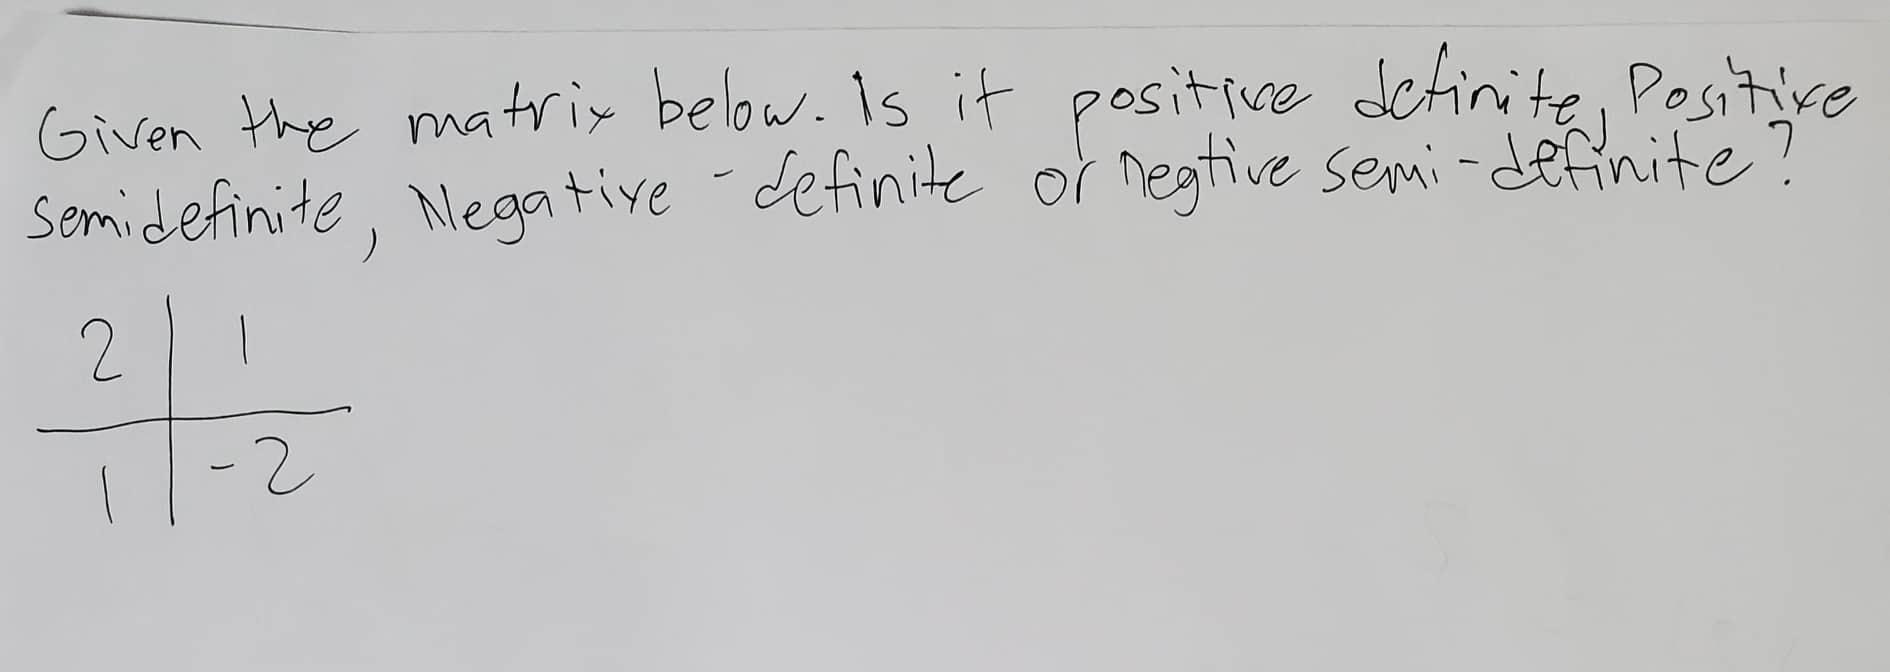 Given the matrix below. Is it positive definite, Positive
semidefinite, Negative-definite or negtive semi-definite?
2 | 1
1 | -2